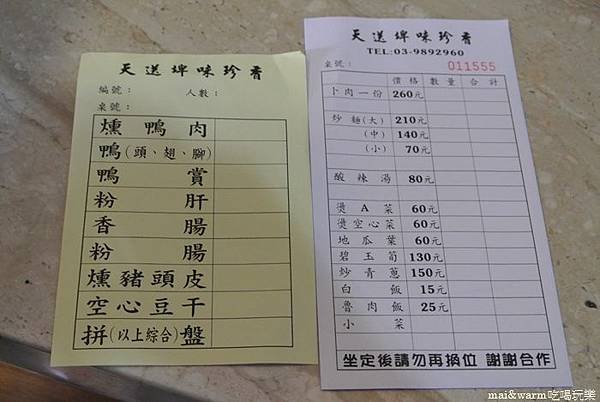 天送埤味珍香
編號：　人數：
桌號：
燻鴨肉
鴨(頭、翅、腳)
鴨賞
粉肝
香腸
粉腸
燻豬頭皮
空心豆干
拼(以上綜合)盤
天送埤味珍香
TEL:03-9892960
桌號：　011555
價格　數量　合計
卜肉一份　260元
炒麵(大)　210元
(中)　140元
(小)　70元
酸辣湯　80元
燙A菜　60元
燙空心菜　60元
地瓜葉　60元
碧玉筍　130元
炒青蔥　150元
白飯　15元
魯肉飯　25元
小菜
坐定後請勿再換位 謝謝合作
mai&warm吃喝玩樂